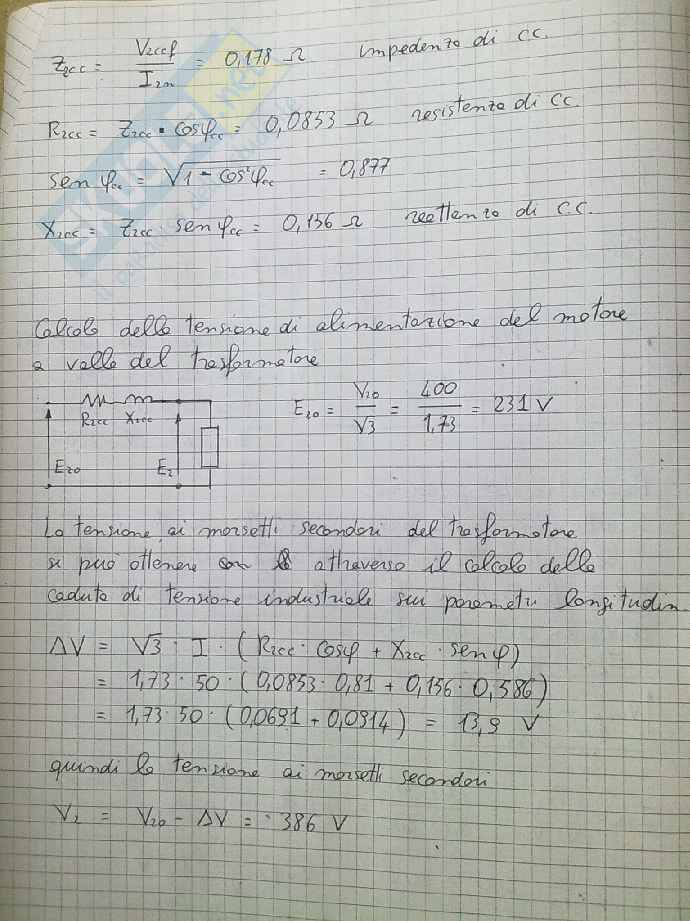 Z₂cc = V₂ccf / I₂n = 0,178 Ω impedenza di cc.
R₂cc = Z₂cc • cosφcc = 0,0853 Ω resistenza di cc
sen φcc = √1 - cos²φcc = 0,877
X₂cc = Z₂cc · sen φcc = 0,156 Ω reattanza di cc.
Calcolo della tensione di alimentazione del motore
a valle del trasformatore
R₂cc X₂cc
E₂₀ E₂
E₂₀ = V₂₀ / √3 = 400 / 1,73 = 231 V
La tensione ai morsetti secondari del trasformatore
si può ottenere con attraverso il calcolo della
caduta di tensione industriale sui parametri longitudin.
ΔV = √3 · I · (R₂cc · cosφ + X₂cc · senφ)
= 1,73 · 50 · (0,0853 · 0,81 + 0,156 · 0,586)
= 1,73 · 50 · (0,0691 + 0,0914) = 13,9 V
quindi la tensione ai morsetti secondari
V₂ = V₂₀ - ΔV = 386 V
SKUOLA.net